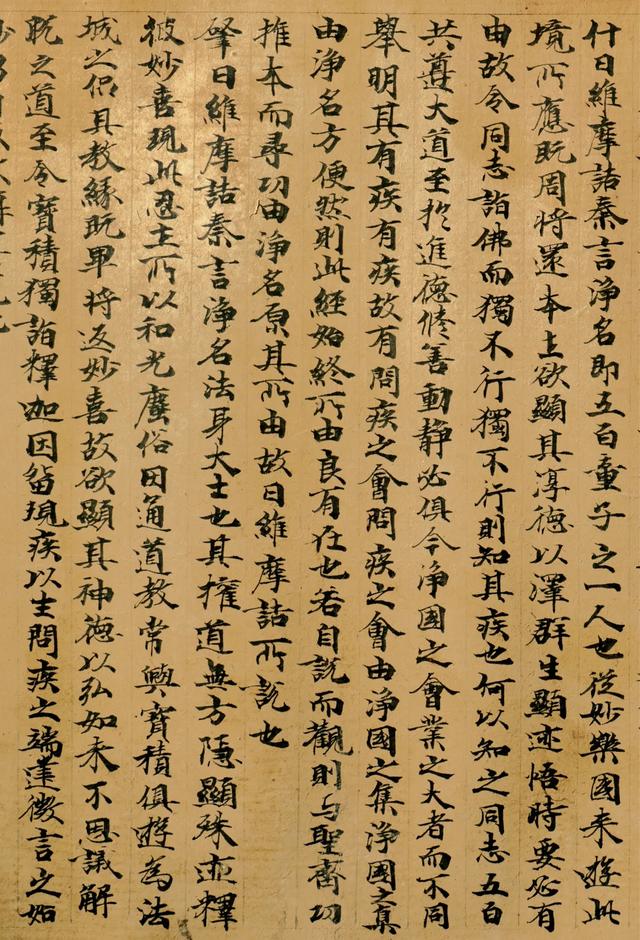 什曰維摩詰秦言淨名即五百童子之一人也從妙樂國來遊此
境所應既周將還本土欲顯其淳德以澤群生顯迹悟時要必有
由故令同志詣佛而獨不行獨不行則知其疾也何以知之同志五百
共遵大道至於進德修善動靜必俱今淨國之會業之大者而不同
舉明其有疾有疾故有問疾之會問疾之會由淨國之集淨國之集
由淨名方便然則此經始終所由良有在也若自說而觀則与聖齊功
推本而尋功由淨名原其所由故曰維摩詰所說也
肇曰維摩詰秦言淨名法身大士也其權道無方隱顯殊迹釋
彼妙喜現此忍土所以和光塵俗因通道教常與寶積俱遊為法
城之侶其教緣既畢將返妙喜故欲顯其神德以弘如来不思議解
脫之道至令寶積獨詣釋迦因留現疾以生問疾之端建微言之始